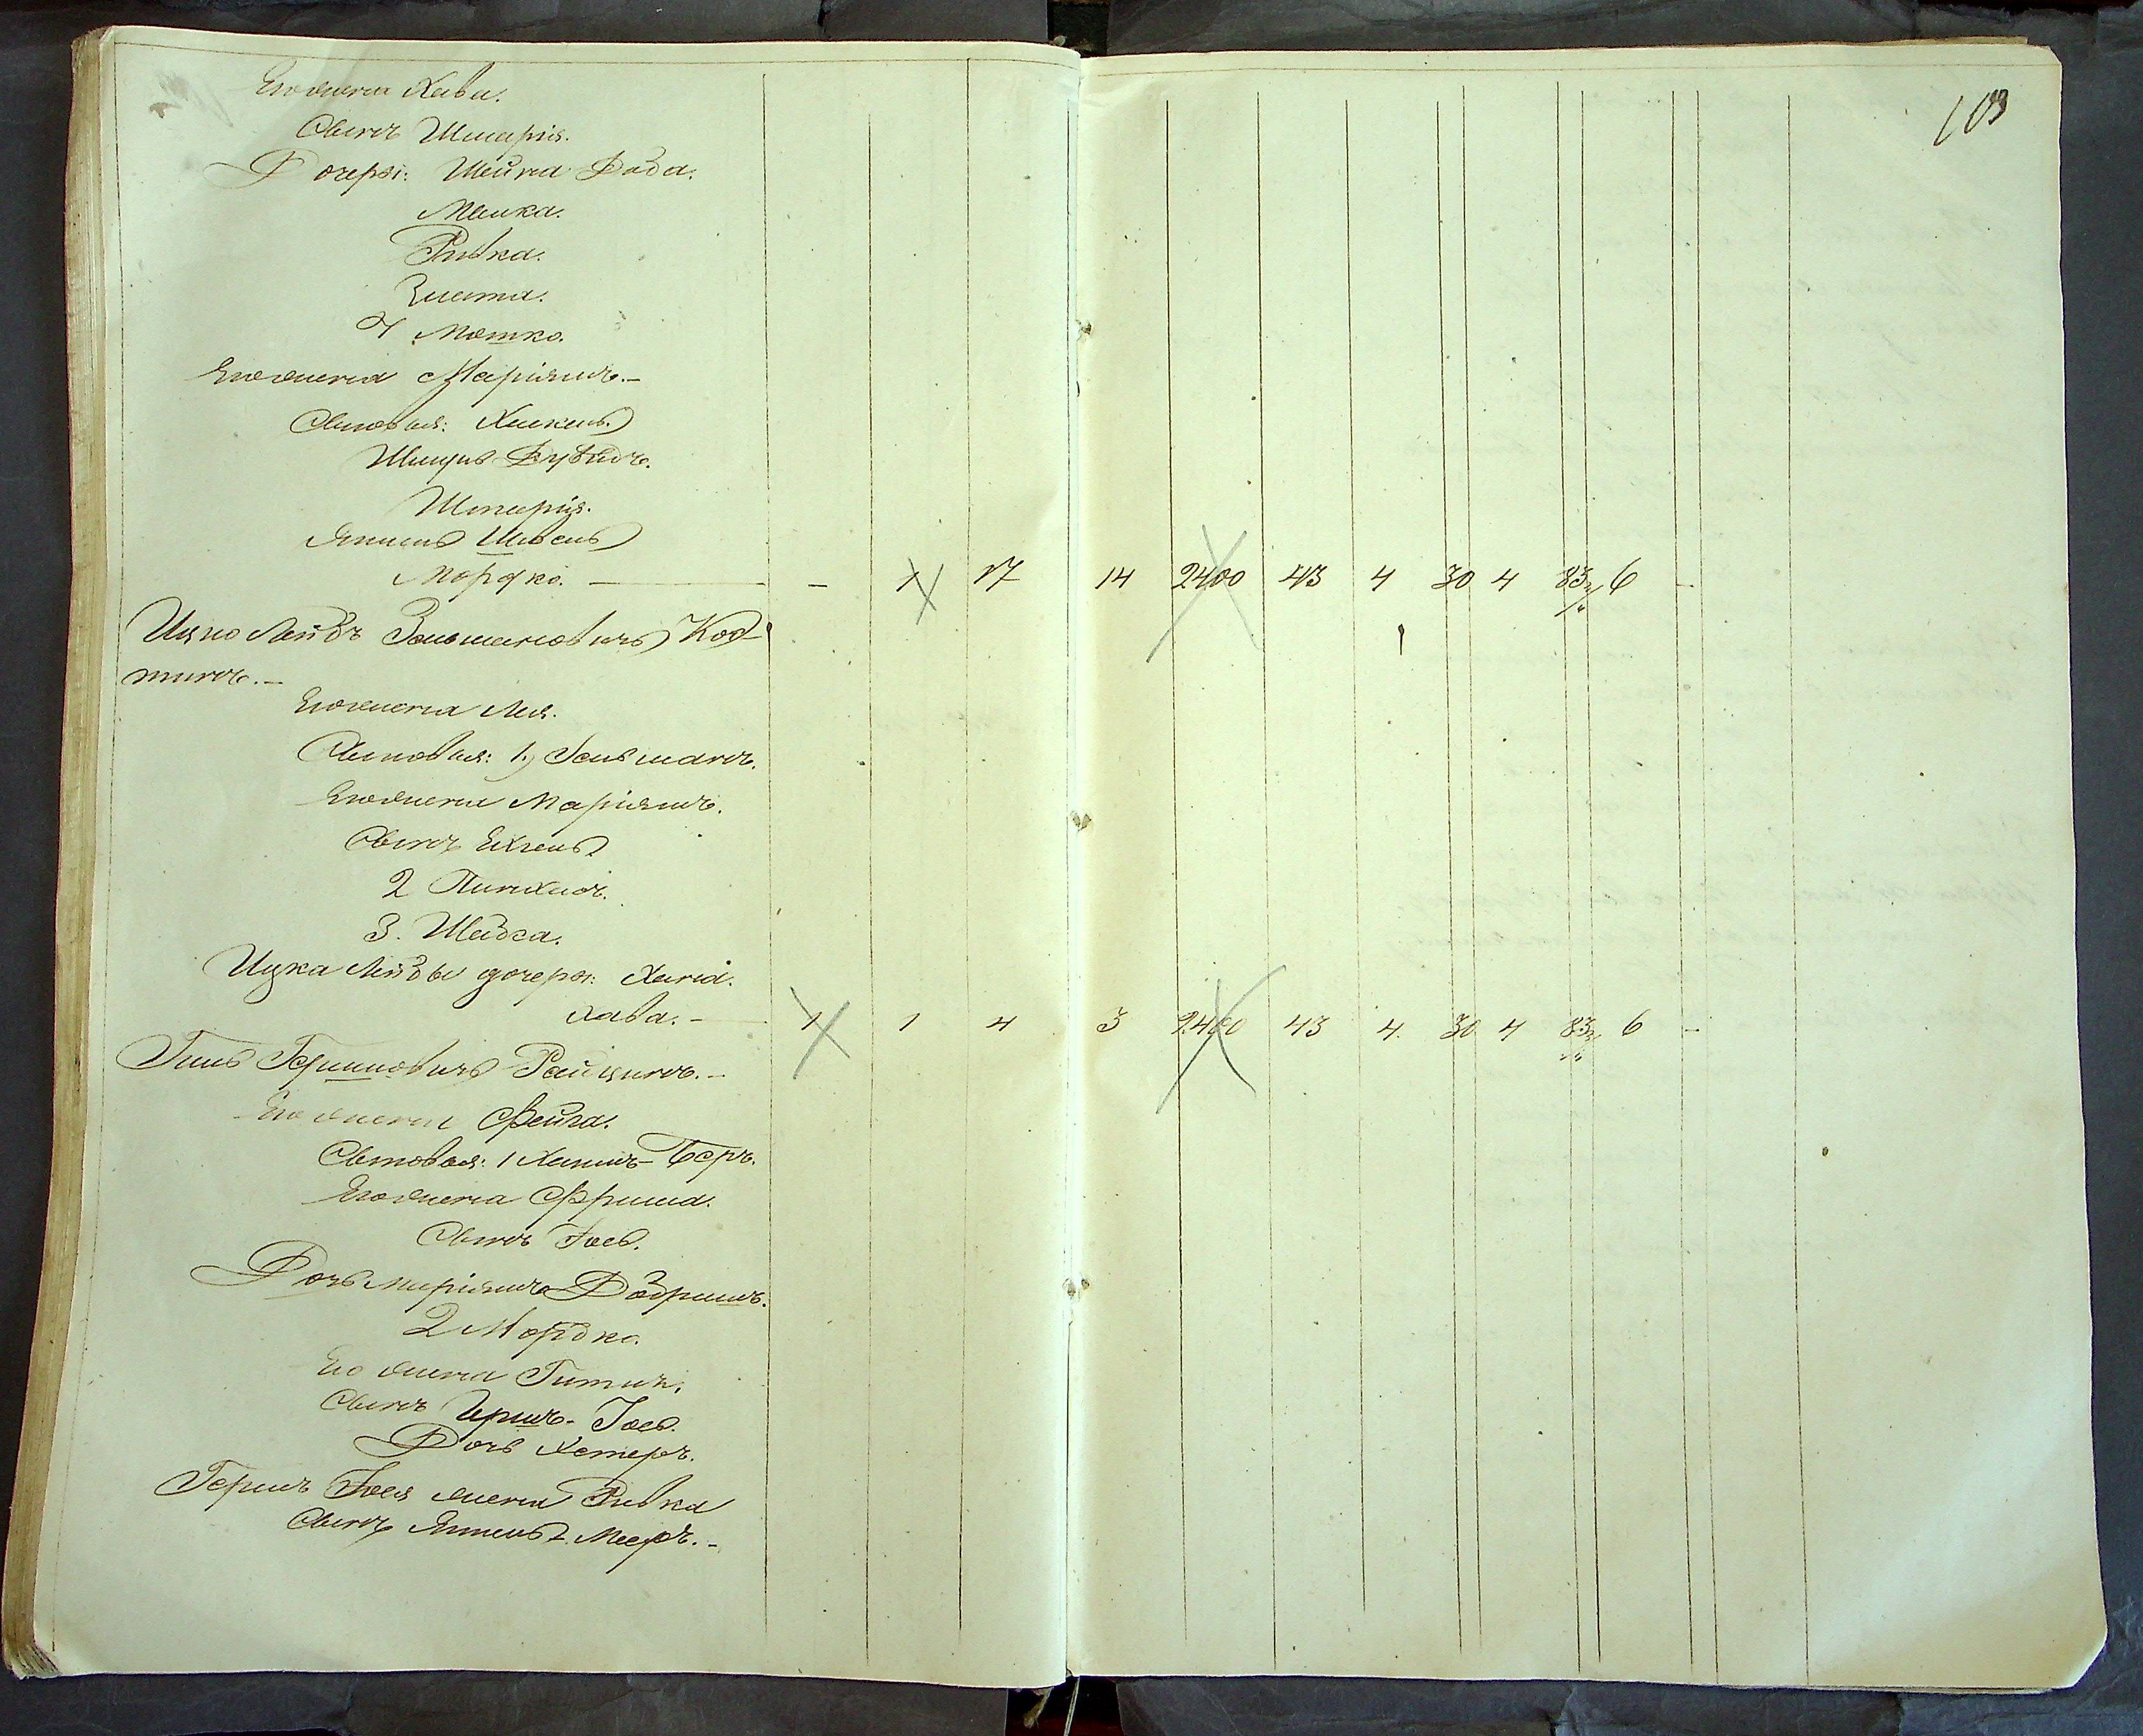 103
Его жена Хава.
Сынъ Шмарія.
Дочери: Шейна Доба.
Малка.
Ривка.
Злата.
4 Мошко.
Его жена Маріямъ.-
Сыновья: Хаскель
Шмуль Дувидъ.
Шмарія.
Янкель Іосель
Мордко. — - 1 17 14 2400 43 4 30 4 83¾ 6 -
Ицко Лейбъ Зельмановичъ Код-
кинъ.-
Его жена Лея.
Сыновья: 1, Зельманъ.
Его жена Маріямъ.
Сынъ Ехіель
2 Пинхасъ.
3. Шабса.
Ицка Лейбы дочери: Хана.
Хава. - 1 1 4 3 2400 43 4 30 4 83¾ 6 -
Гиль Гершковичъ Райцинъ.-
Его жена Фейга.
Сыновья: 1 Хаимъ-Беръ.
Его жена Фрума.
Сынъ Іось.
Дочь Маріямъ Добрушъ.
2 Мордко.
Его жена Гитля.
Сынъ Гершъ-Іось.
Дочь Хетеръ.
Гершъ Іося жена Ривка
Сынъ Янкель Мееръ.-